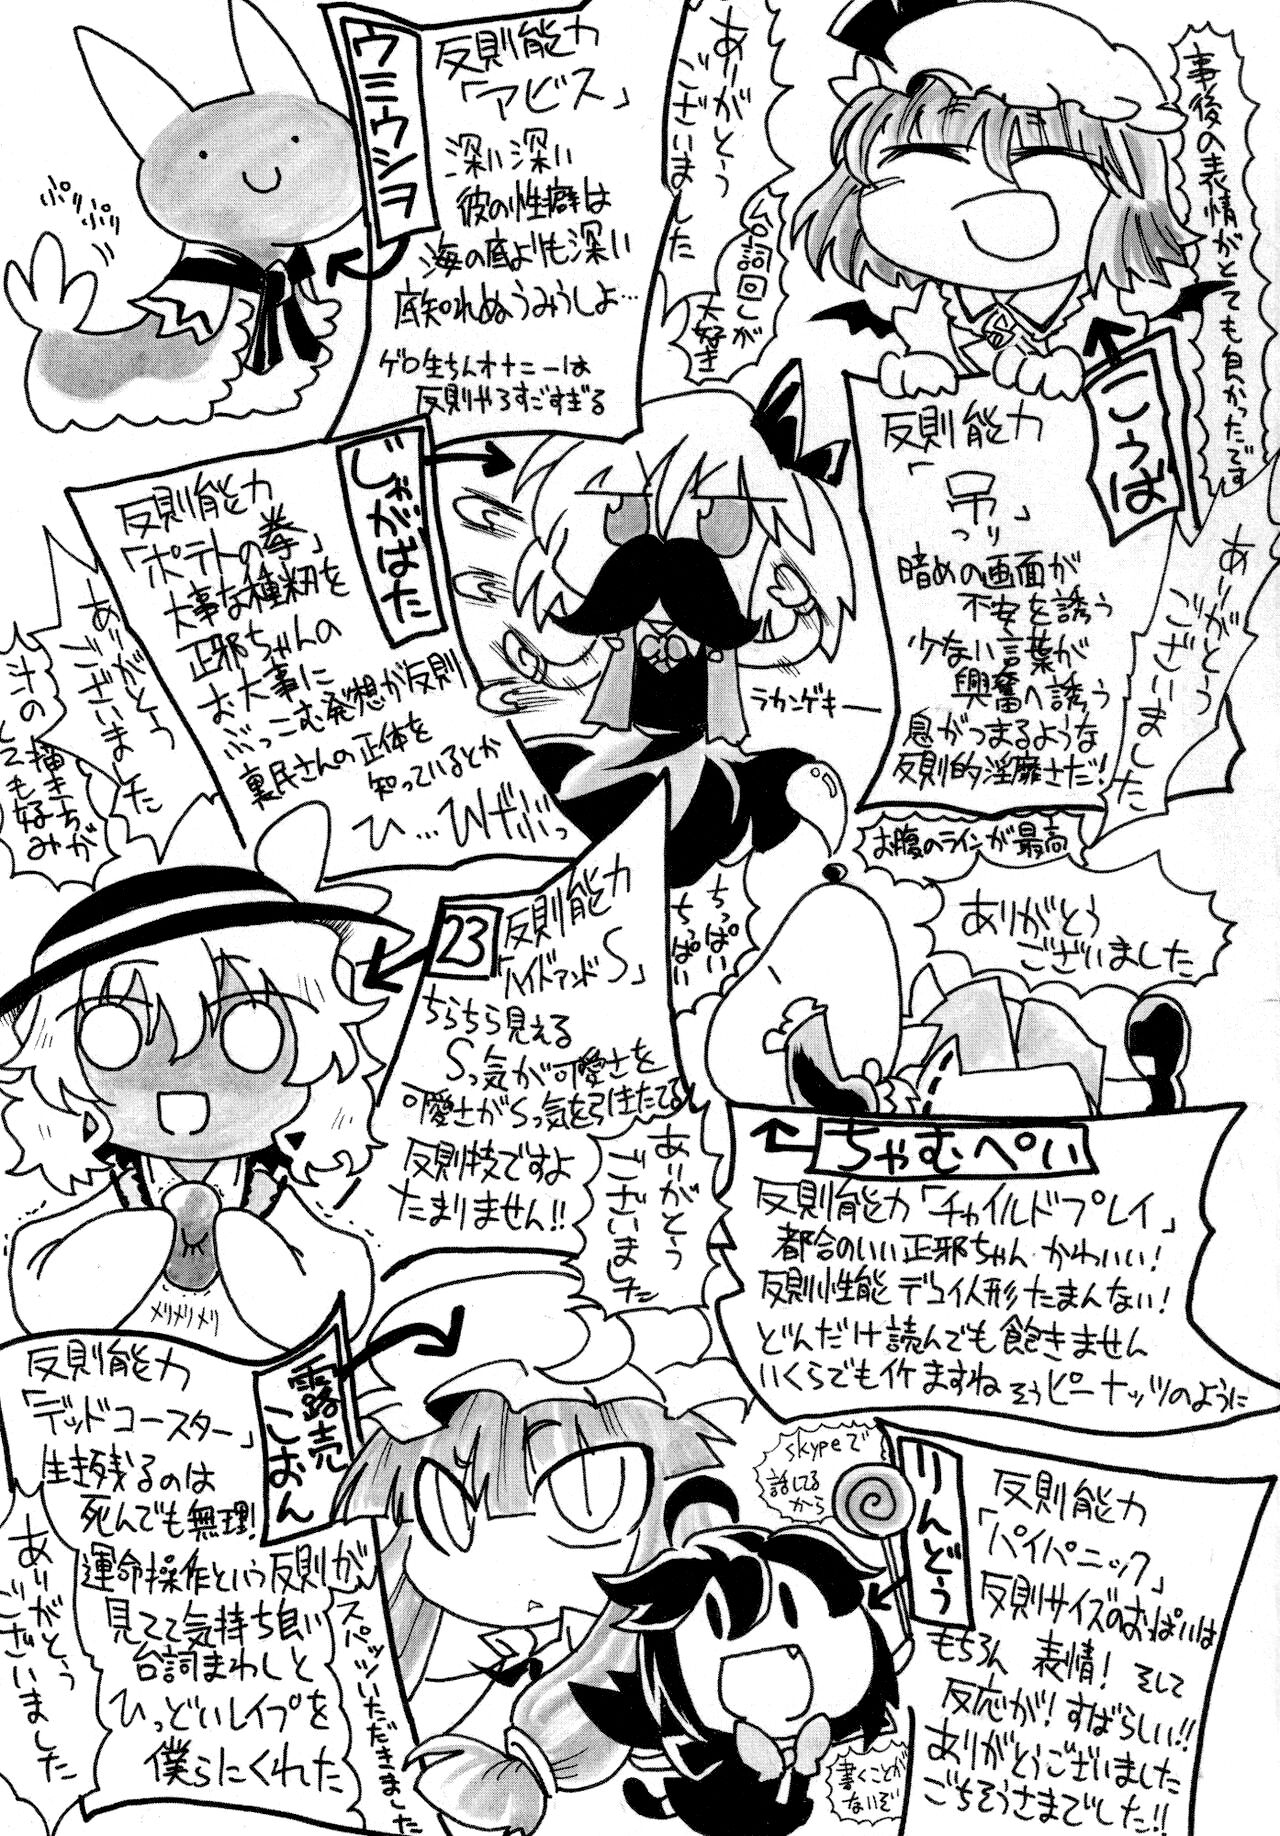 事後の表情がとても良かったです
ありがとう
ございました
台詞回しが
大好き
こうば
反則能力
「吊」
つり
暗めの画面が
不安を誘う
少ない言葉が
興奮へ誘う
息がつまるような
反則的淫靡さだ!
お腹のラインが最高
ありがとう
ございました
ウミウシヲ
反則能力
「アビス」
深い深い
彼の性癖は
海の底よりも深い
底知れぬうみうしよ…
ゲロ生ちんオナニーは
反則やろすごすぎる
ぷりぷり
ありがとう
ございました
じゃがばた
反則能力
「ポテトの拳」
大事な種籾を
正邪ちゃんの
お大事に
ぶっこむ発想が反則
裏民さんの正体を
知っているとか
ひ…ひでぶっ
ラカンゲキー
汁の描き方が
とても好み
ありがとう
ございました
23
反則能力
「ハイドアンドS」
ちらちら見える
Sっ気が可愛さを
可愛さがSっ気を引きたてる
反則技ですよ
たまりません!!
ちっぱい
ちっぱい
ありがとう
ございました
メリメリメリ
ありがとう
ございました
ちゃむぺい
反則能力「チャイルドプレイ」
都合のいい正邪ちゃん かわいい!
反則性能デコイ人形たまんない!
どんだけ読んでも飽きません
いくらでもイケますね そうピーナッツのように
露売
こおん
反則能力
「デッドコースター」
生き残るのは
死んでも無理!
運命操作という反則が
見てて気持ち良い
台詞まわしと
ひっどいレイプを
僕らにくれた
スパッツいただきました
ありがとう
ございました
skypeで
話してる
から
書くことが
ないぞ
りんどう
反則能力
「パイパニック」
反則サイズのおっぱいは
もちろん 表情! そして
反応が! すばらしい!!
ありがとうございました
ごちそうさまでした!!